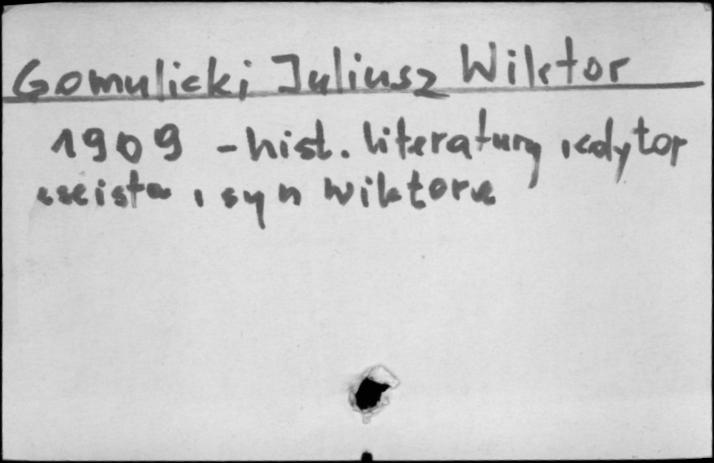 Gomulicki Juliusz Wiktor
1909 - hist. literatury, edytor
eseista, syn Wiktora